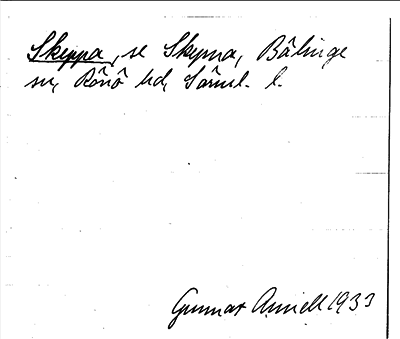 Skeppa, se Skepna, Bälinge
sn, Rönö hd, Söml. l.
Gunnar Amiell 1933